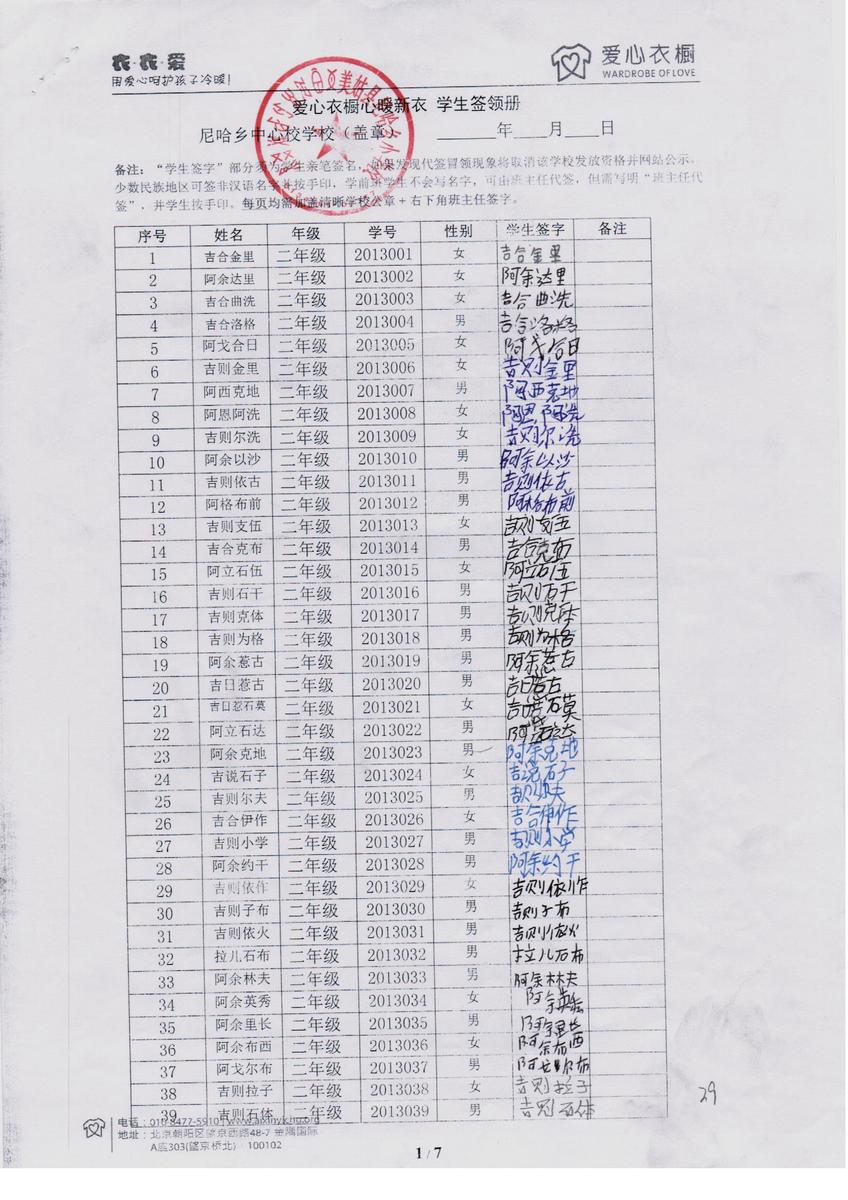 衣·衣·爱
用爱心呵护孩子冷暖!
爱心衣橱
WARDROBE OF LOVE
爱心衣橱心暖新衣 学生签领册
尼哈乡中心校学校（盖章） 年 月 日
备注：“学生签字”部分须为学生亲笔签名，如果发现代签冒领现象将取消该学校发放资格并网站公示。
少数民族地区可签非汉语名字并按手印，学前班学生不会写名字，可由班主任代签，但需写明“班主任代
签”，并学生按手印。每页均需加盖清晰学校公章+右下角班主任签字。
序号 姓名 年级 学号 性别 学生签字 备注
1 吉合金里 二年级 2013001 女 吉合金里
2 阿余达里 二年级 2013002 女 阿余达里
3 吉合曲洗 二年级 2013003 女 吉合曲洗
4 吉合洛格 二年级 2013004 男 吉合洛格
5 阿戈合日 二年级 2013005 女 阿戈合日
6 吉则金里 二年级 2013006 女 吉则金里
7 阿西克地 二年级 2013007 男 阿西克地
8 阿恩阿洗 二年级 2013008 女 阿恩阿洗
9 吉则尔洗 二年级 2013009 女 吉则尔洗
10 阿余以沙 二年级 2013010 男 阿余以沙
11 吉则依古 二年级 2013011 男 吉则依古
12 阿格布前 二年级 2013012 男 阿格布前
13 吉则支伍 二年级 2013013 女 吉则支伍
14 吉合克布 二年级 2013014 男 吉合克布
15 阿立石伍 二年级 2013015 女 阿立石伍
16 吉则石干 二年级 2013016 男 吉则石干
17 吉则克体 二年级 2013017 男 吉则克体
18 吉则为格 二年级 2013018 男 吉则为格
19 阿余惹古 二年级 2013019 男 阿余惹古
20 吉日惹古 二年级 2013020 男 吉日惹古
21 吉日惹石莫 二年级 2013021 女 吉日惹石莫
22 阿立石达 二年级 2013022 男 阿立石达
23 阿余克地 二年级 2013023 男 阿余克地
24 吉说石子 二年级 2013024 女 吉说石子
25 吉则尔夫 二年级 2013025 男 吉则尔夫
26 吉合伊作 二年级 2013026 女 吉合伊作
27 吉则小学 二年级 2013027 男 吉则小学
28 阿余约干 二年级 2013028 男 阿余约干
29 吉则依作 二年级 2013029 女 吉则依作
30 吉则子布 二年级 2013030 男 吉则子布
31 吉则依火 二年级 2013031 男 吉则依火
32 拉儿石布 二年级 2013032 男 拉儿石布
33 阿余林夫 二年级 2013033 男 阿余林夫
34 阿余英秀 二年级 2013034 女 阿余英秀
35 阿余里长 二年级 2013035 男 阿余里长
36 阿余布西 二年级 2013036 女 阿余布西
37 阿戈尔布 二年级 2013037 男 阿戈尔布
38 吉则拉子 二年级 2013038 女 吉则拉子
39 吉则石体 二年级 2013039 男 吉则石体
29
地址：北京朝阳区望京西路48-7 金隅国际
A座303(望京桥北) 100102
1 / 7